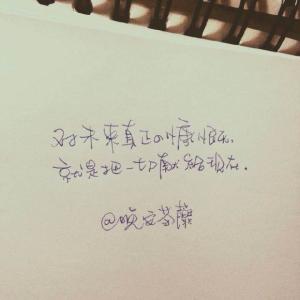 对未来真正的慷慨,
就是把一切献给现在.
@晚安蔷蘼